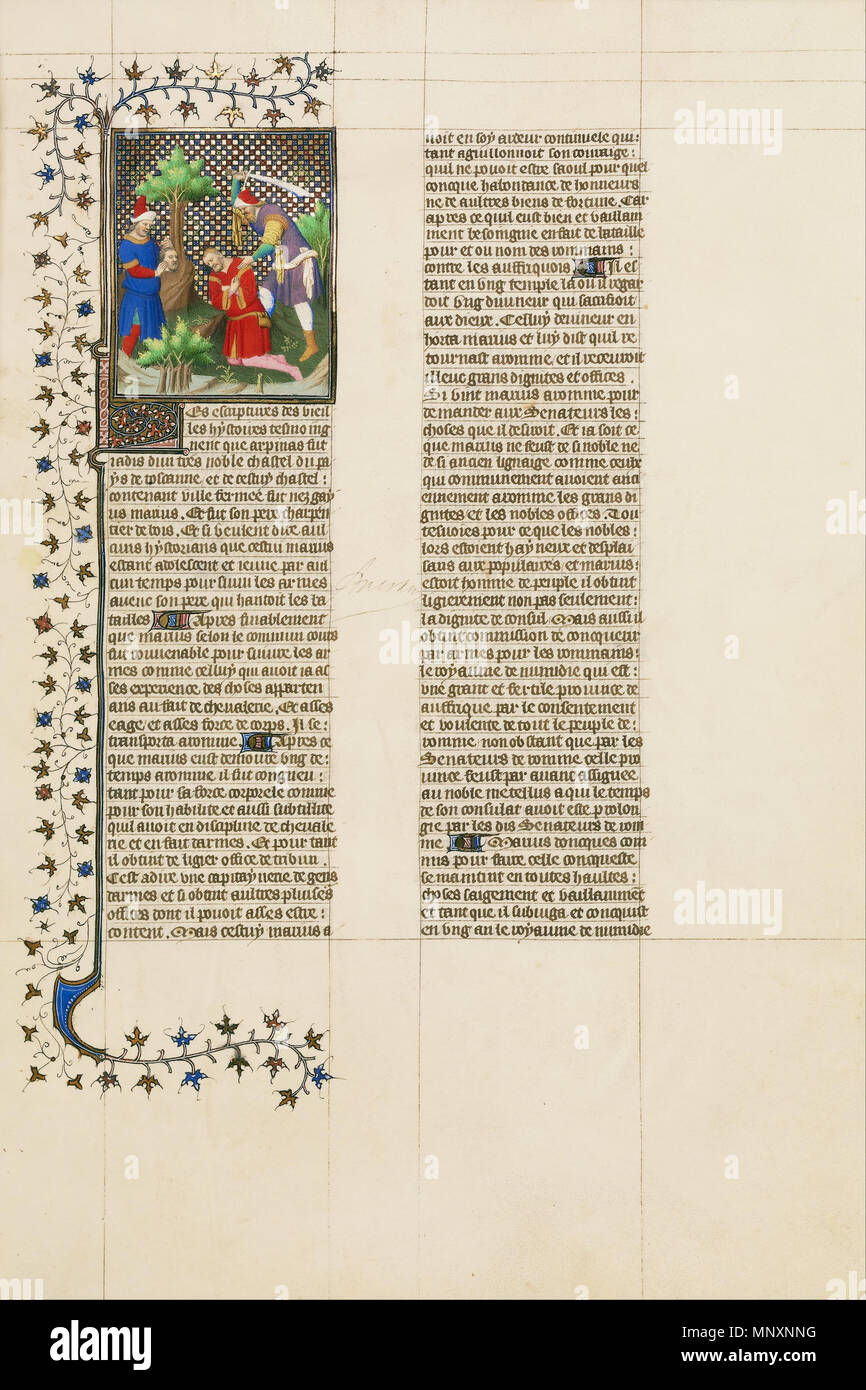 Es escriptures des vieil
les hystoires tesmoing
nent que arpinas fut
iadis dun tres noble chastel du pa
ys de toscanne et de cestuy chastel:
contenant ville fermee fut nez gay
us marius. Et fut son pere charpen
tier de bois. Et si veulent dire aul
cuns hystorians que cestui marius
estant adolescent et ieune par aul
cun temps pour suivi les armes
avenc son pere qui hantoit les ba
tailles Apres finablement
que marius selon le commun cours
fut convenable pour suivre les ar
mes comme celluy qui avoit ia as
ses experience des choses apparten
ans au fait de chevalerie. Et asses
eage et asses force de corps. Il se:
transporta aromme. Apres ce
que marius eust demoure ung de:
temps aromme il fut congneu:
tant pour sa force corporele comme
pour son habilite et aussi subtillite
quil avoit en discipline de chevale
rie et en fait darmes. Et pour tant
il obtint de ligier office de tribun.
Cest adire une capitaynerie de gens
darmes et si obtint aultres pluises
offices dont il povoit asses estre:
content. Mais cestuy marius a
uoit en soy ardeur continuele qui:
tant aguillonnoit son couraige:
quil ne pouoit estre saoul pour quel
conque habondance de honneurs
ne de aultres biens de fortune. Car
apres ce quil eust bien et vaillam
ment besongnie en fait de bataille
pour et ou nom des rommains:
contre les auffriquois Il es
tant en ung temple la ou il regar
doit ung divineur qui sacrifioit
aux dieux. Celluy devineur en
horta marius et luy dist quil re
tournast aromme, et il recevroit
illeuc grans dignites et offices.
Si vint marius aromme pour
demander aux Senateurs les:
choses que il desiroit. Et ia soit ce
que marius ne feust de si noble ne
de si ancien lignaige comme ceulx
qui communement avoient anci
ennement aromme les grans di
gnites et les nobles offices. Tou
tesvoies pour ce que les nobles:
lors estoient hayneux et desplai
sans aux populaires et marius:
estoit homme de peuple il obtint
ligierement non pas seulement:
la dignite de consul Mais aussi il
obtint commission de conquerir
par armes pour les rommains:
le royaume de numidie qui est:
une grant et fertile province de
auffrique par le consentement
et voulente de tout le peuple de:
romme non obstant que par les
Senateurs de romme celle pro
uince feust par avant assignee
au noble metellus a qui le temps
de son consulat avoit este prolon
gie par les dis Senateurs de rom
me. Marius doncques com
mis pour faire celle conqueste
se maintint en toutes haultes:
choses saigement et vaillamment
et tant que il subiuga et conquist
en ung an le royaume de numidie
alamy
alamy
Image ID: MNXNNG
www.alamy.com